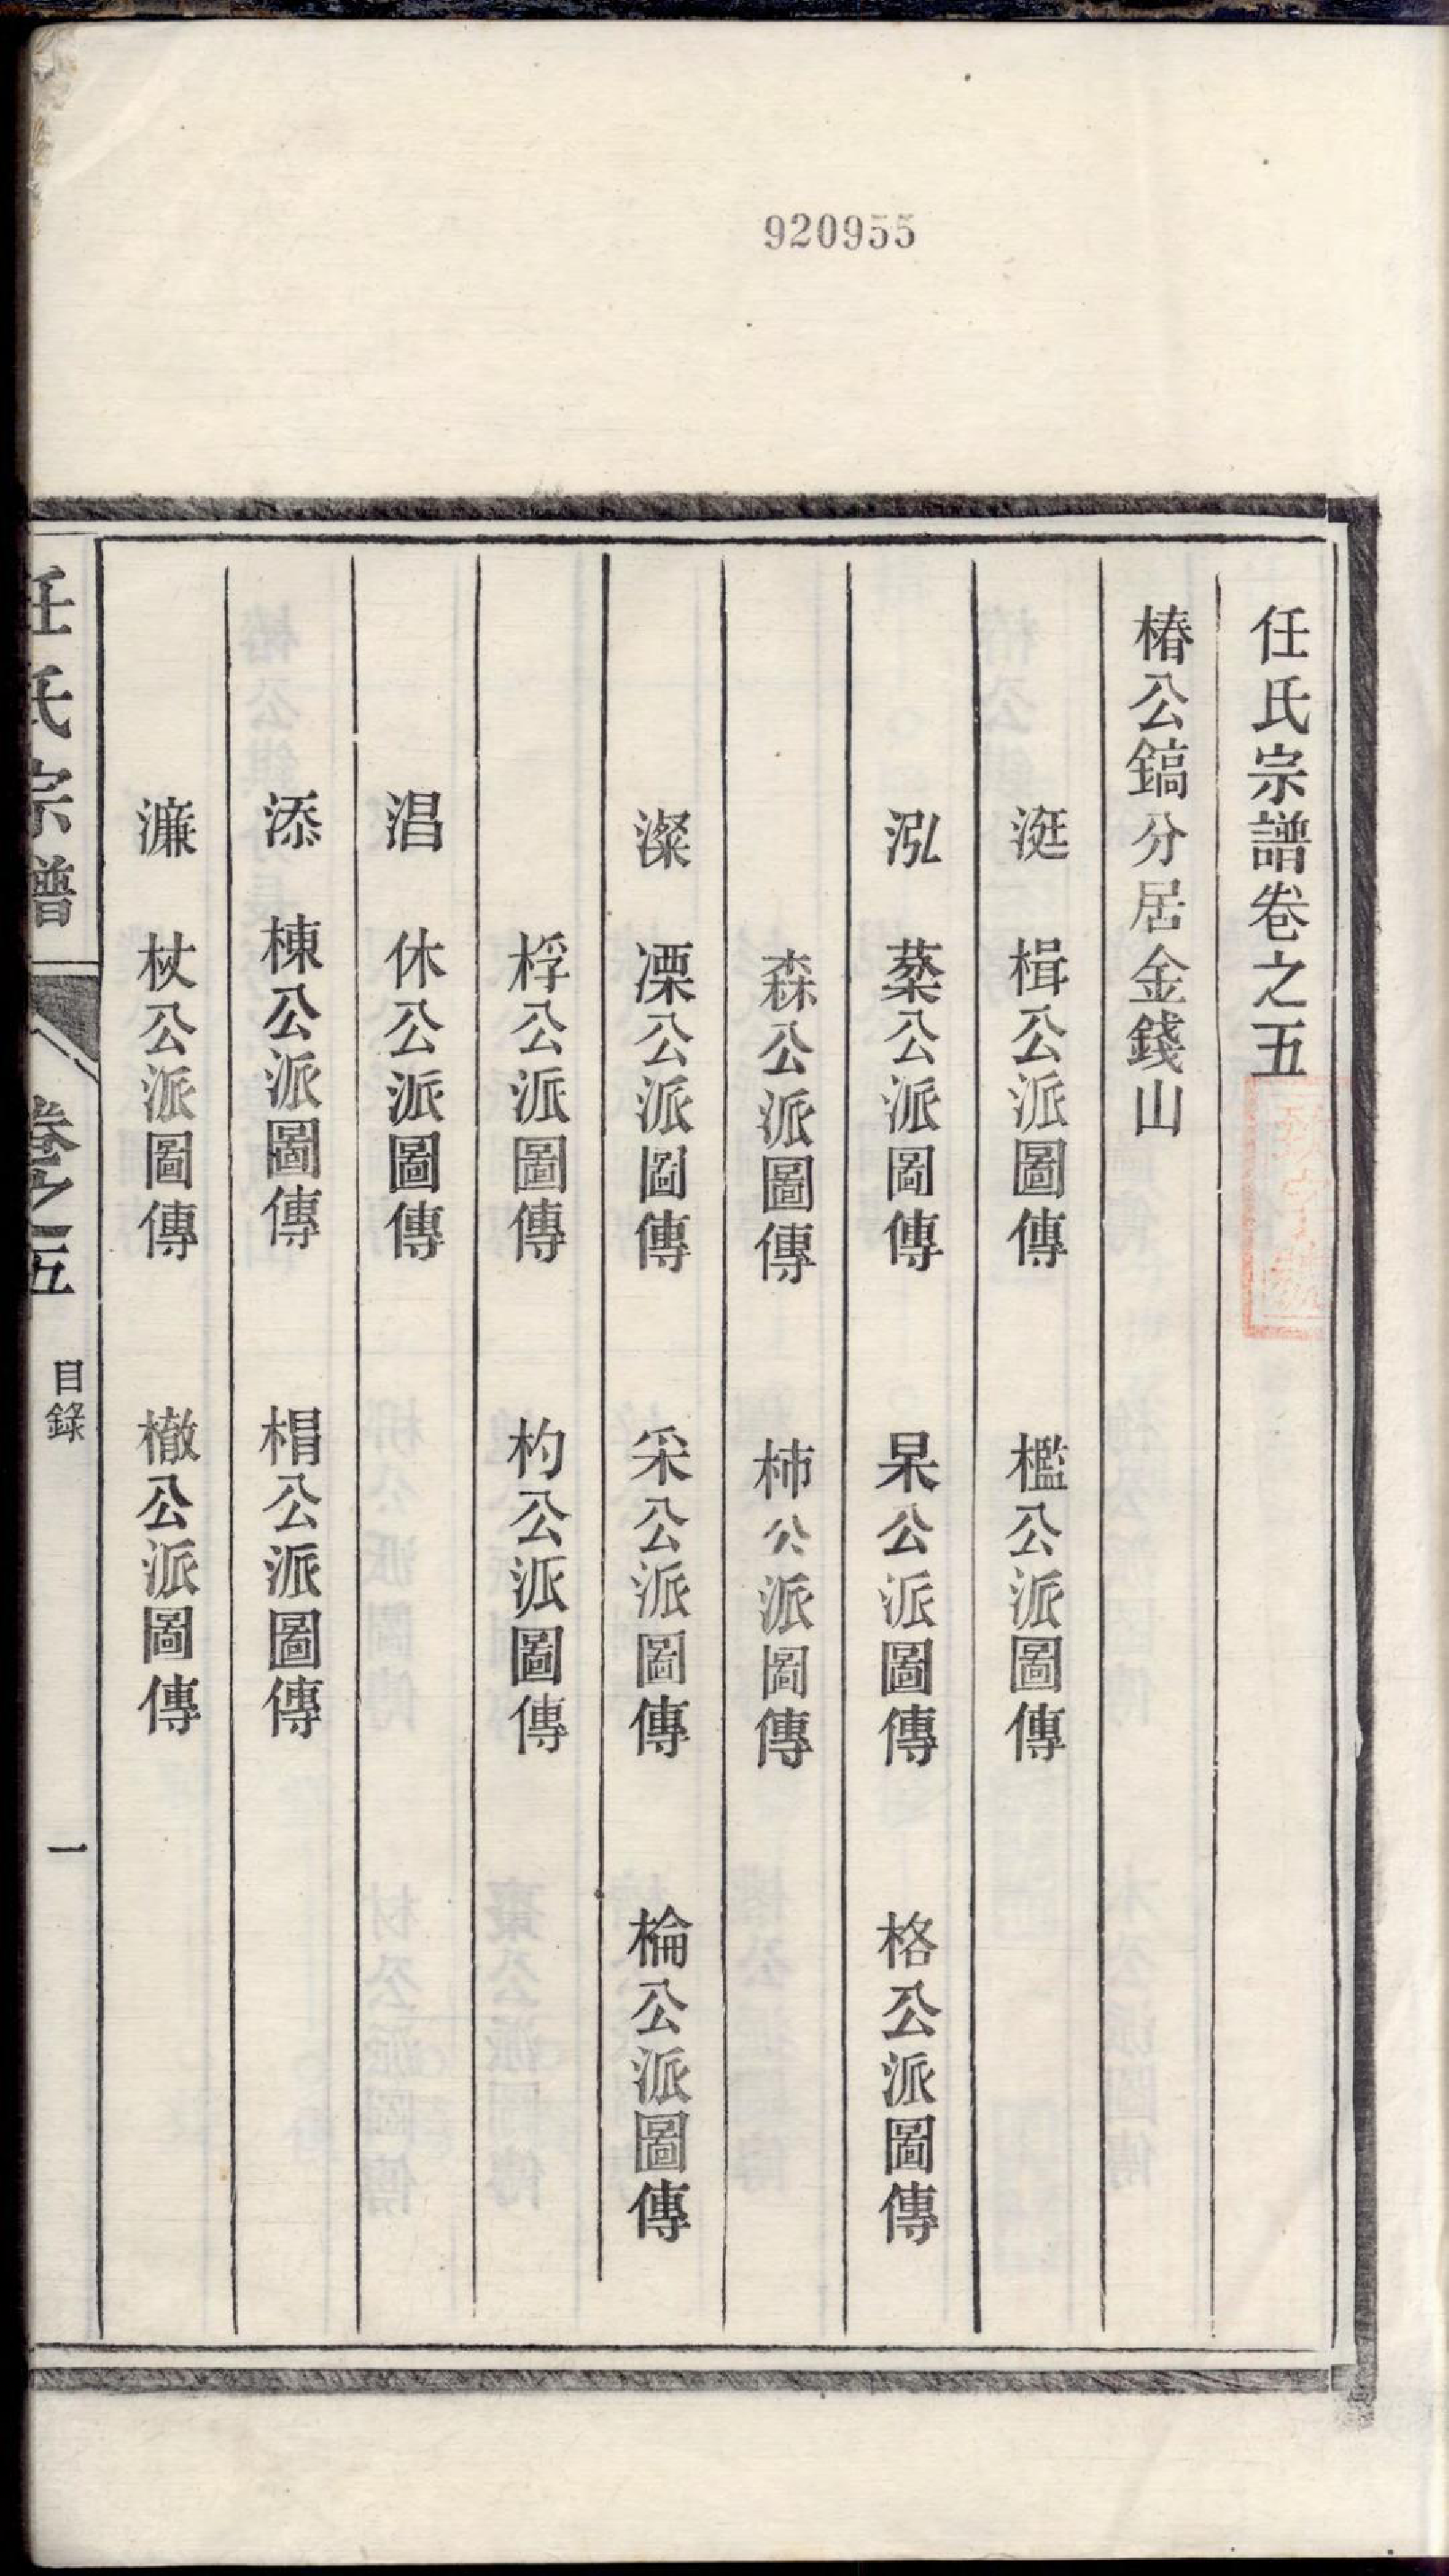 920955
任氏宗譜卷之五
椿公鎬分居金錢山
涏 楫公派圖傳 檻公派圖傳
泓 蘂公派圖傳 杲公派圖傳 格公派圖傳
森公派圖傳 柿公派圖傳
澯 凓公派圖傳 采公派圖傳 棆公派圖傳
桴公派圖傳 杓公派圖傳
淐 休公派圖傳
添 棟公派圖傳 楣公派圖傳
濂 杖公派圖傳 橄公派圖傳
任氏宗譜 卷之五 目錄 一